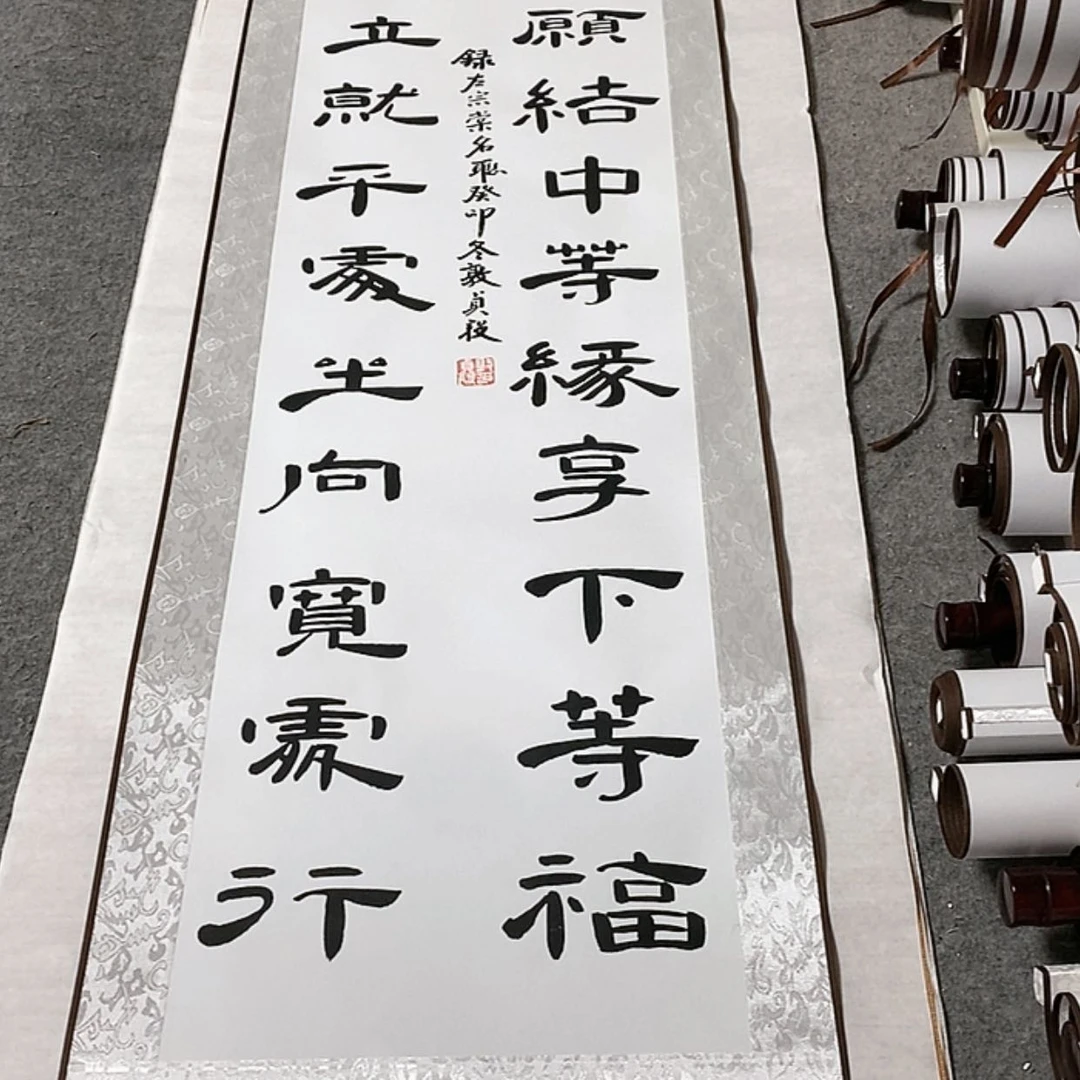 願結中等緣享下等福
録左宗棠名聯癸卯冬敦貞
立就平處坐向寬處行